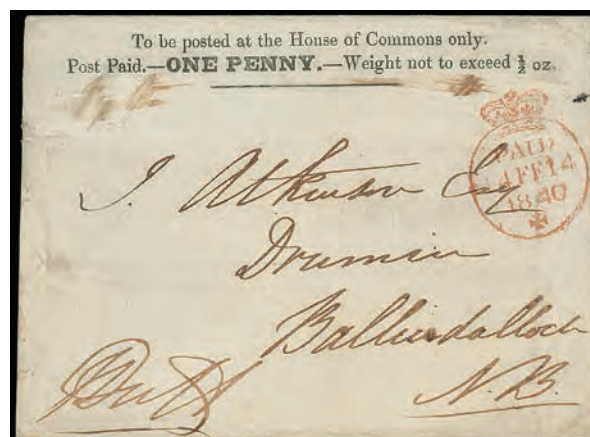 To be posted at the House of Commons only.
Post Paid.—ONE PENNY.—Weight not to exceed ½ oz.
PAID
14 FE 14
1840
J. Atkinson Esq
Drumin
Ballindalloch
N.B.